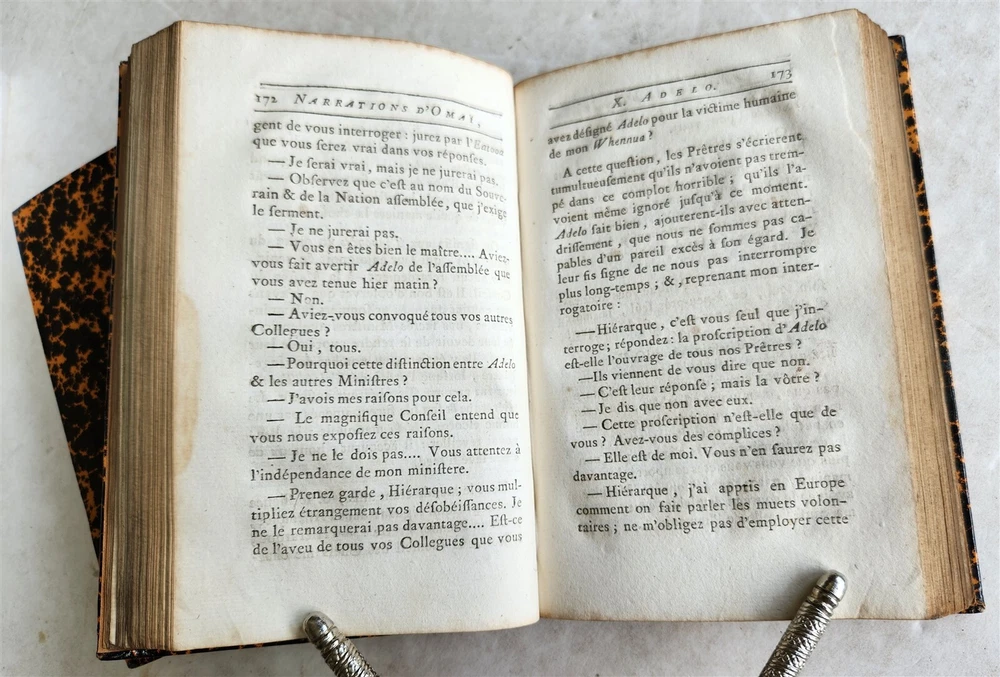 172 NARRATIONS D'OMAÏ,
gent de vous interroger : jurez par l'Eatooa
que vous ſerez vrai dans vos réponſes.
— Je ſerai vrai, mais je ne jurerai pas.
— Obſervez que c'eſt au nom du Souve-
rain & de la Nation aſſemblée, que j'exige
le ſerment.
— Je ne jurerai pas.
— Vous en êtes bien le maître.... Aviez-
vous fait avertir Adelo de l'aſſemblée que
vous avez tenue hier matin ?
— Non.
— Aviez-vous convoqué tous vos autres
Collegues ?
— Oui, tous.
— Pourquoi cette diſtinction entre Adelo
& les autres Miniſtres ?
— J'avois mes raiſons pour cela.
— Le magnifique Conſeil entend que
vous nous expoſiez ces raiſons.
— Je ne le dois pas.... Vous attentez à
l'indépendance de mon miniſtere.
— Prenez garde, Hiérarque ; vous mul-
tipliez étrangement vos déſobéiſſances. Je
ne le remarquerai pas davantage.... Eſt-ce
de l'aveu de tous vos Collegues que vous
X. ADELO. 173
avez déſigné Adelo pour la victime humaine
de mon Whennua ?
A cette queſtion, les Prêtres s'écrierent
tumultueuſement qu'ils n'avoient pas trem-
pé dans ce complot horrible ; qu'ils l'a-
voient même ignoré juſqu'à ce moment.
Adelo ſait bien, ajouterent-ils avec atten-
driſſement, que nous ne ſommes pas ca-
pables d'un pareil excès à ſon égard. Je
leur fis ſigne de ne nous pas interrompre
plus long-temps ; &, reprenant mon inter-
rogatoire :
— Hiérarque, c'eſt vous ſeul que j'in-
terroge ; répondez : la proſcription d'Adelo
eſt-elle l'ouvrage de tous nos Prêtres ?
— Ils viennent de vous dire que non.
— C'eſt leur réponſe ; mais la vôtre ?
— Je dis que non avec eux.
— Cette proſcription n'eſt-elle que de
vous ? Avez-vous des complices ?
— Elle eſt de moi. Vous n'en ſaurez pas
davantage.
— Hiérarque, j'ai appris en Europe
comment on fait parler les muets volon-
taires ; ne m'obligez pas d'employer cette